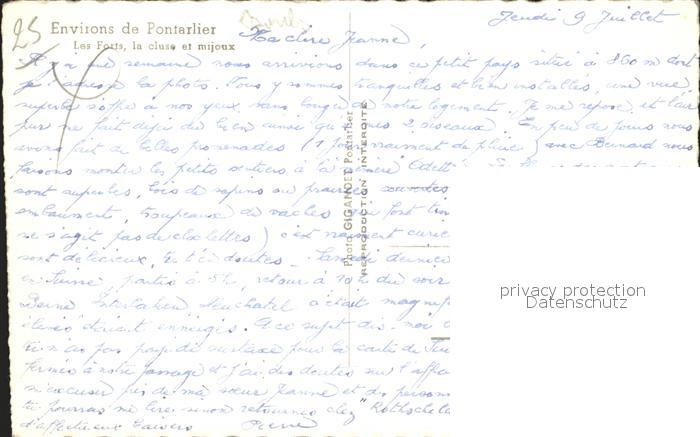 25
Environs de Pontarlier
Les Forts, la cluse et mijoux
Jeudi 9 Juillet
Ma chère Jeanne,
Il y a une semaine nous arrivions dans ce petit pays situé à 860 m dont
je la photo. Nous y sommes tranquilles et bien installés, une vue
superbe s'offre à nos yeux, sans bouger de notre logement. Je me repose et l'air
pur me fait déjà du bien ainsi qu'à mes 2 oiseaux. En peu de jours nous
avons fait de belles promenades (1 jour vraiment de pluie) avec Bernard nous
faisons monter les petits sentiers à la "mémère" Odette
sont superbes, bois de sapins ou prairies
embaument, troupeaux de vaches qui font
ne s'agit pas de clochettes) c'est vraiment
sont délicieux, tu t'en doutes. Samedi dernier
en Suisse, partis à 5h, retour à 10h du soir
Berne Interlaken Neuchatel c'était
élevés étaient enneigés. A ce sujet dis-moi
tu n'as pas payé de surtaxe pour la carte de
fermés à notre passage et j'ai des doutes sur l'
m'excuser près de ma sœur Jeanne et des
tu pourras me lire sinon retournes chez "
d'affectueux baisers Pierre
Photo GIGANDET Pontarlier
REPRODUCTION INTERDITE
privacy protection
Datenschutz